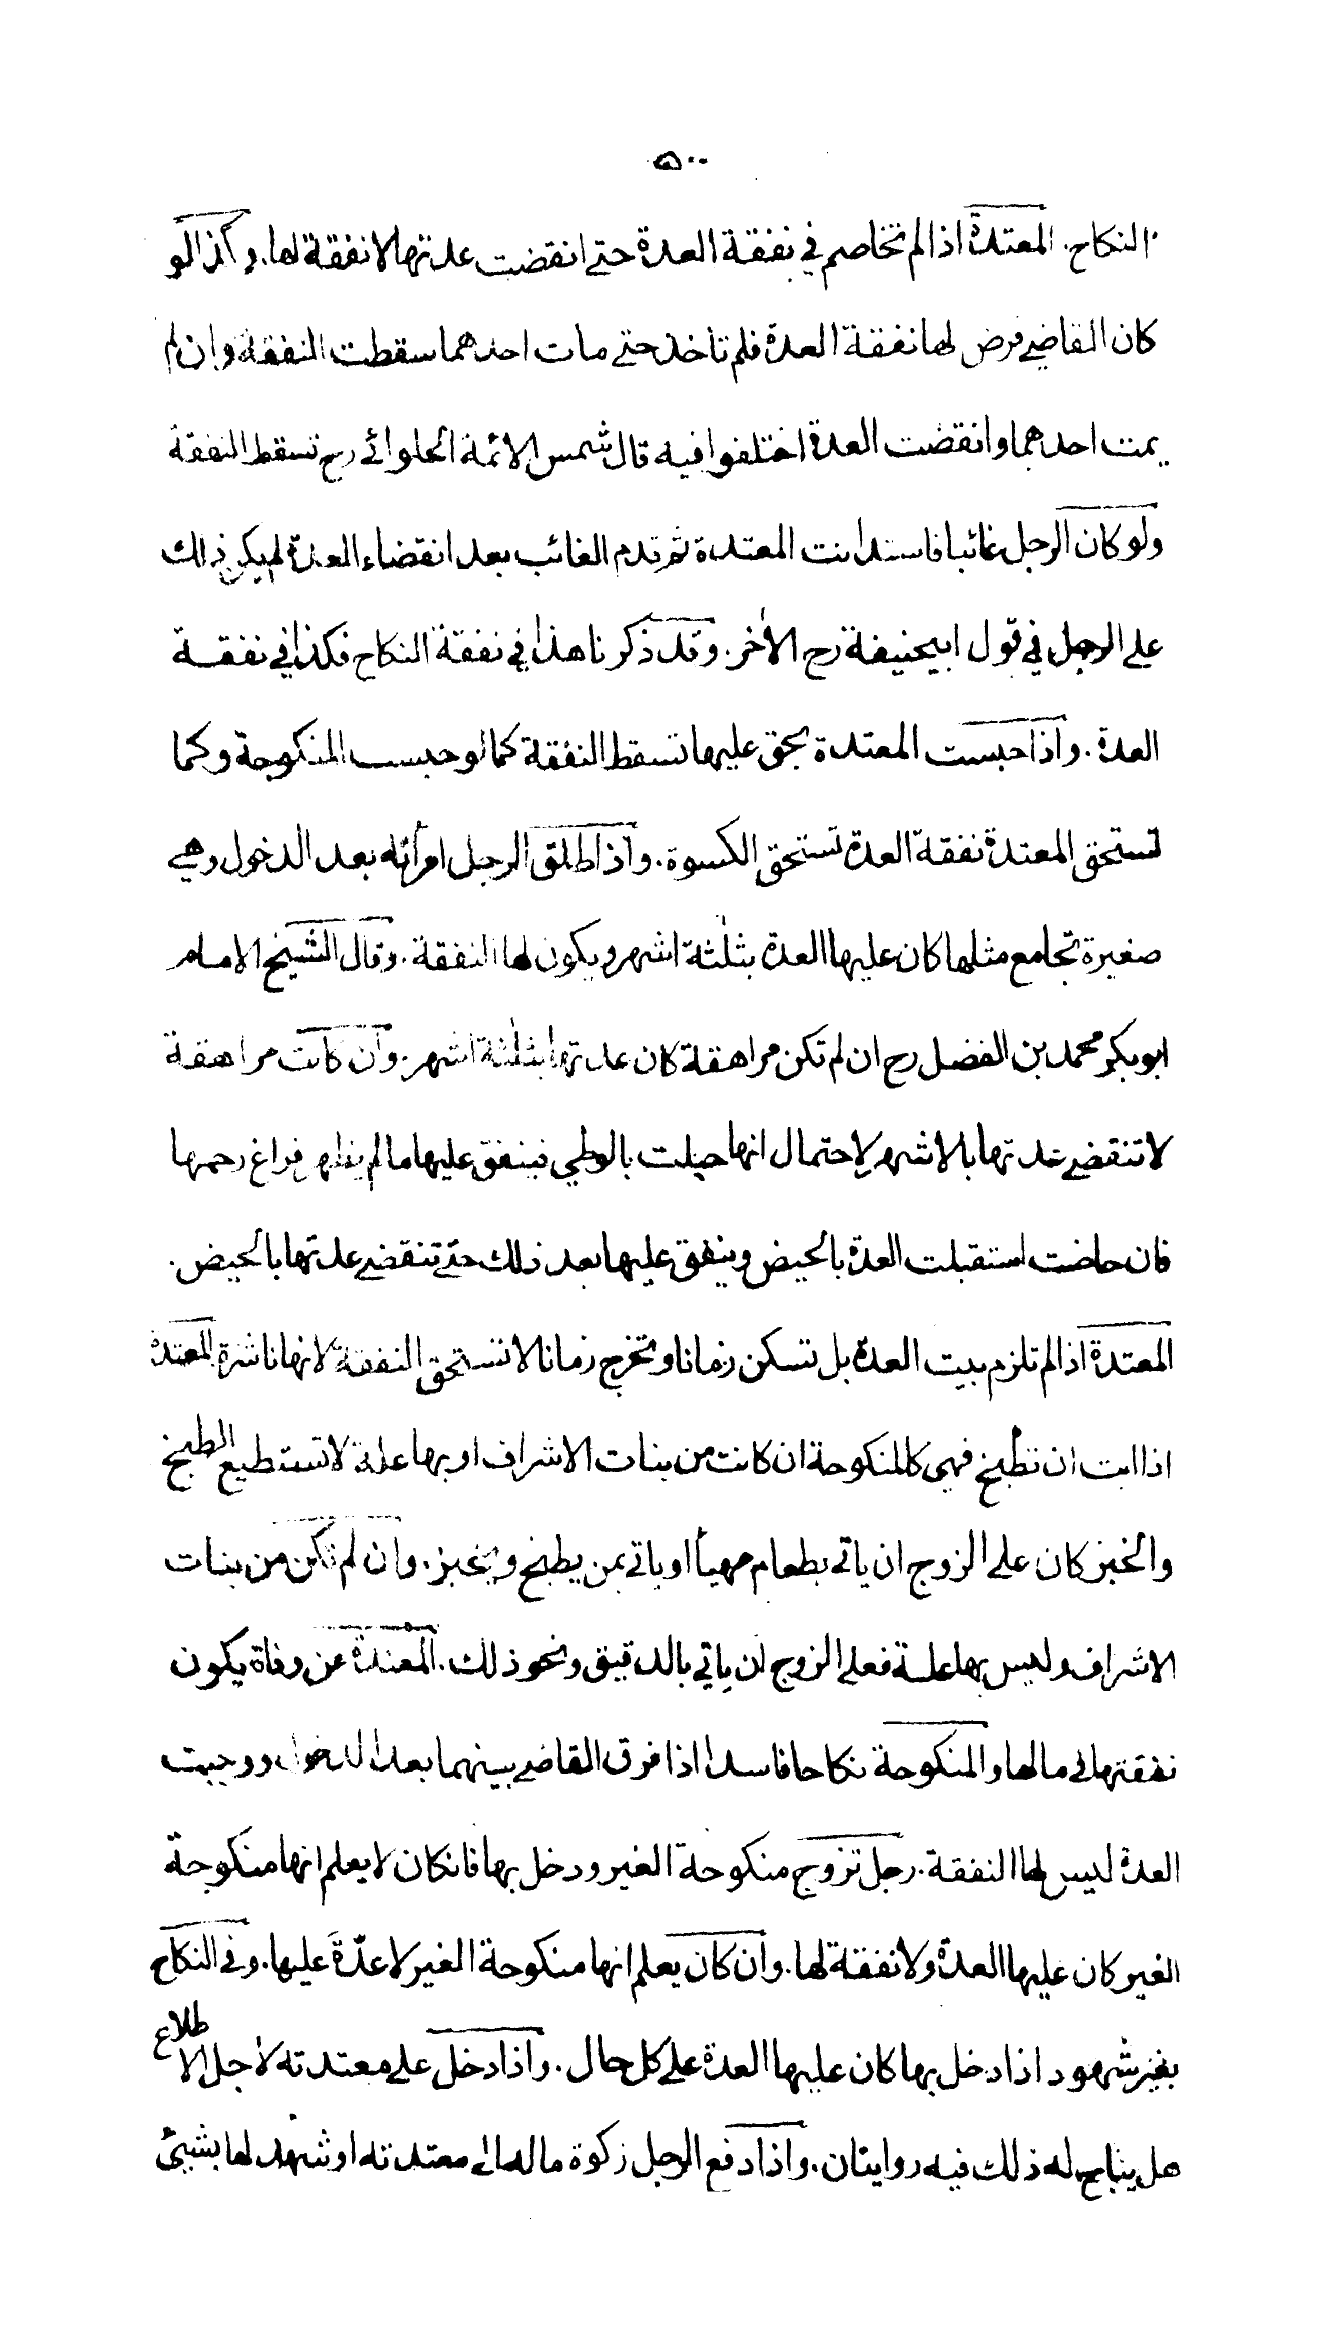 ٥٠٠
النكاح. المعتدة اذا لم تخاصم في نفقة العدة حتے انقضت عدتها لا نفقة لها. وكذا لو
كان القاضے فرض لها نفقة العدة فلم تأخذ حتے مات احدهما سقطت النفقة وان لم
يمت احدهما وانقضت العدة اختلفوا فيه قال شمس الائمة الحلوائے رح تسقط النفقة
ولو كان الرجل غائبا فاستدانت المعتدة ثم قدم الغائب بعد انقضاء العدة لم يكن ذلك
علے الرجل في قول ابيحنيفة رح الأخر. وقد ذكرنا هذا في نفقة النكاح فكذا في نفقة
العدة. واذا حبست المعتدة بحق عليها تسقط النفقة كما لو حبست المنكوحة وكما
تستحق المعتدة نفقة العدة تستحق الكسوة. واذا طلق الرجل امرأته بعد الدخول وهي
صغيرة تجامع مثلها كان عليها العدة بثلثة اشهر ويكون لها النفقة. وقال الشيخ الامام
ابو بكر محمد بن الفضل رح ان لم تكن مراهقة كان عدتها بثلثة اشهر. وان كانت مراهقة
لا تنقضے عدتها بالاشهر لاحتمال انها حبلت بالوطي فينفق عليها ما لم يظهر فراغ رحمها
فان حاضت استقبلت العدة بالحيض وينفق عليها بعد ذلك حتے تنقضے عدتها بالحيض.
المعتدة اذا لم تلزم بيت العدة بل تسكن زمانا وتخرج زمانا لا تستحق النفقة لانها ناشزة المعتدة
اذا ابت ان تطبخ فهي كالمنكوحة ان كانت من بنات الاشراف او بها علة لا تستطيع الطبخ
والخبز كان علے الزوج ان ياتي بطعام مهيأ او ياتي بمن يطبخ ويخبز. وان لم تكن من بنات
الاشراف وليس بها علة فعلے الزوج ان ياتي بالدقيق ونحو ذلك. المعتدة عن وفاة يكون
نفقتها في مالها والمنكوحة نكاحا فاسدا اذا فرق القاضے بينهما بعد الدخول ووجبت
العدة ليس لها النفقة. رجل تزوج منكوحة الغير ودخل بها فان كان لا يعلم انها منكوحة
الغير كان عليها العدة ولا نفقة لها. وان كان يعلم انها منكوحة الغير لا عدّة عليها. وفي النكاح
بغير شهود اذا دخل بها كان عليها العدة علے كل حال. واذا دخل علے معتدته لأجل الاطلاع
هل يباح له ذلك فيه روايتان. واذا دفع الرجل زكوة ماله الے معتدته او شهد لها بشيئ